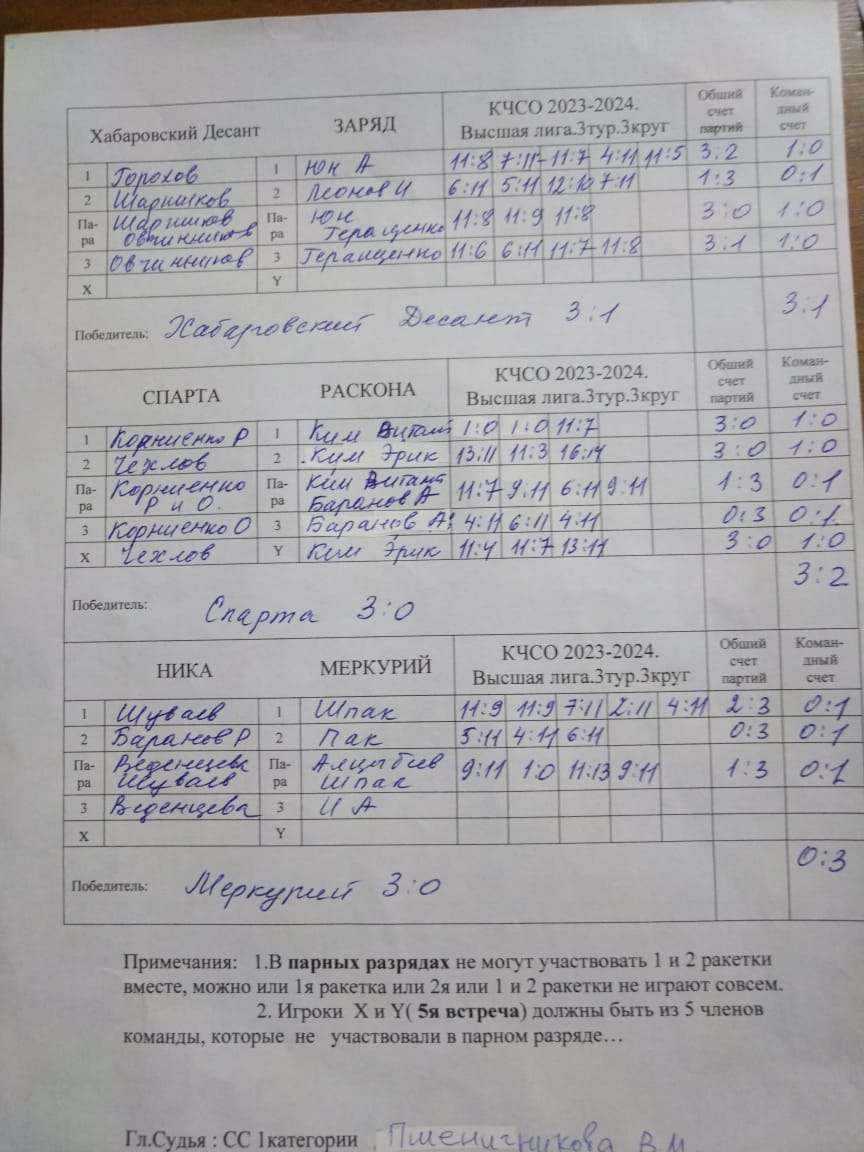 Хабаровский Десант ЗАРЯД КЧСО 2023-2024. Высшая лига.3тур.3круг Общий счет партий Коман-дный счет
1 Горохов 1 Юн А 11:8 7:11 11:7 4:11 11:5 3:2 1:0
2 Шарников 2 Леонов И 6:11 5:11 12:10 7:11 1:3 0:1
Па-ра Шарников Овчинников Па-ра Юн Геращенко 11:8 11:9 11:8 3:0 1:0
3 Овчинников 3 Геращенко 11:6 6:11 11:7 11:8 3:1 1:0
X Y
Победитель: Хабаровский Десант 3:1 3:1
СПАРТА РАСКОНА КЧСО 2023-2024. Высшая лига.3тур.3круг Общий счет партий Коман-дный счет
1 Корниенко Р 1 Ким Витант 1:0 1:0 11:7 3:0 1:0
2 Чехлов 2 Ким Эрик 13:11 11:3 16:14 3:0 1:0
Па-ра Корниенко Р и О. Па-ра Ким Витант Баранов А 11:7 9:11 6:11 9:11 1:3 0:1
3 Корниенко О 3 Баранов А 4:11 6:11 4:11 0:3 0:1
X Чехлов Y Ким Эрик 11:4 11:7 13:11 3:0 1:0
3:2
Победитель: Спарта 3:0
НИКА МЕРКУРИЙ КЧСО 2023-2024. Высшая лига.3тур.3круг Общий счет партий Коман-дный счет
1 Шуваев 1 Шпак 11:9 11:9 7:11 2:11 4:11 2:3 0:1
2 Баранов Р 2 Пак 5:11 4:11 6:11 0:3 0:1
Па-ра Веденцева Шуваев Па-ра Шпак 9:11 1:0 11:13 9:11 1:3 0:1
3 Веденцева 3 И А
X Y
0:3
Победитель: Меркурий 3:0
Примечания: 1.В парных разрядах не могут участвовать 1 и 2 ракетки
вместе, можно или 1я ракетка или 2я или 1 и 2 ракетки не играют совсем.
2. Игроки X и Y( 5я встреча) должны быть из 5 членов
команды, которые не участвовали в парном разряде…
Гл.Судья : СС 1категории Пшеничникова В.М.